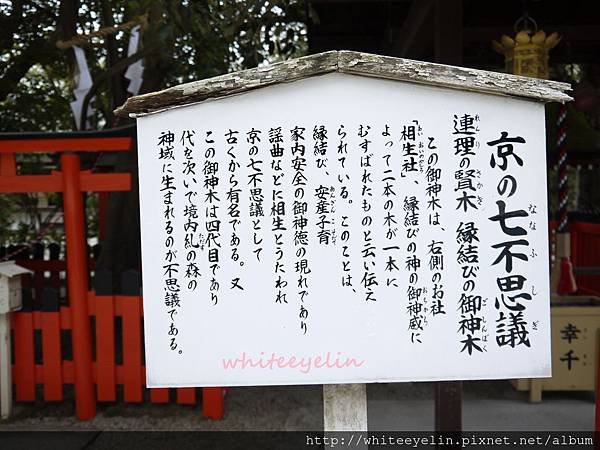 京の七不思議
なな ふ し ぎ
連理の賢木 縁結びの御神木
れんり さかき ござんぼく
この御神木は、右側のお社
「相生社」、縁結びの神の御神威に
よって二本の木が一本に
むすばれたものと云い伝え
られている。このことは、
縁結び、安産子育
家内安全の御神徳の現れであり
謡曲などに相生とうたわれ
京の七不思議として
古くから有名である。又
この御神木は四代目であり
代を次いで境内糺の森の
神域に生まれるのが不思議である。
幸千
whiteeyelin
http://whiteeyelin.pixnet.net/album